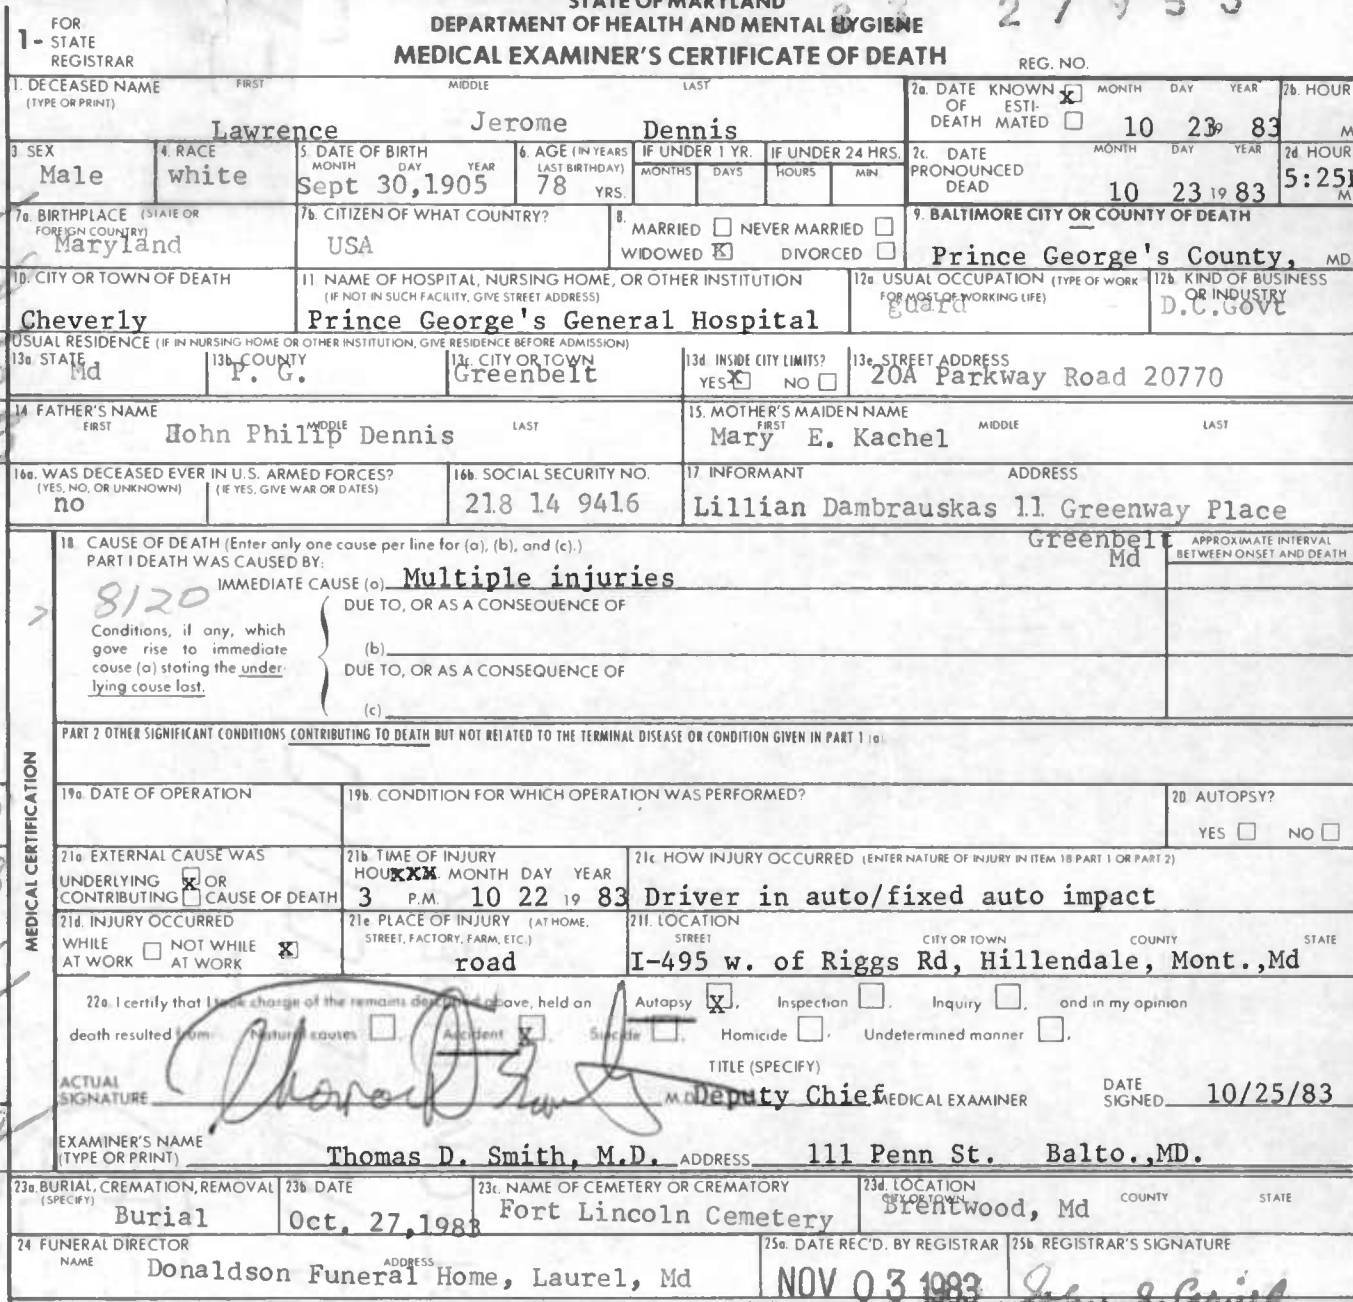 STATE OF MARYLAND
DEPARTMENT OF HEALTH AND MENTAL HYGIENE
MEDICAL EXAMINER'S CERTIFICATE OF DEATH
1- FOR STATE REGISTRAR
REG. NO.
1. DECEASED NAME (TYPE OR PRINT) FIRST MIDDLE LAST
Lawrence Jerome Dennis
2a. DATE OF DEATH KNOWN X ESTIMATED MONTH DAY YEAR
10 23 19 83
2b. HOUR M
3 SEX
Male
4. RACE
white
5. DATE OF BIRTH MONTH DAY YEAR
Sept 30,1905
6. AGE (IN YEARS LAST BIRTHDAY)
78 YRS.
IF UNDER 1 YR. MONTHS DAYS
IF UNDER 24 HRS. HOURS MIN
2c. DATE PRONOUNCED DEAD MONTH DAY YEAR
10 23 19 83
2d HOUR
5:25 M
7a. BIRTHPLACE (STATE OR FOREIGN COUNTRY)
Maryland
7b. CITIZEN OF WHAT COUNTRY?
USA
8. MARRIED NEVER MARRIED
WIDOWED X DIVORCED
9. BALTIMORE CITY OR COUNTY OF DEATH
Prince George's County, MD
10. CITY OR TOWN OF DEATH
Cheverly
11 NAME OF HOSPITAL, NURSING HOME, OR OTHER INSTITUTION
(IF NOT IN SUCH FACILITY, GIVE STREET ADDRESS)
Prince George's General Hospital
12a USUAL OCCUPATION (TYPE OF WORK FOR MOST OF WORKING LIFE)
guard
12b. KIND OF BUSINESS OR INDUSTRY
D.C.Govt
USUAL RESIDENCE (IF IN NURSING HOME OR OTHER INSTITUTION, GIVE RESIDENCE BEFORE ADMISSION)
13a STATE
Md
13b COUNTY
P. G.
13c. CITY OR TOWN
Greenbelt
13d INSIDE CITY LIMITS?
YES X NO
13e. STREET ADDRESS
20A Parkway Road 20770
14 FATHER'S NAME FIRST MIDDLE LAST
Hohn Philip Dennis
15. MOTHER'S MAIDEN NAME FIRST MIDDLE LAST
Mary E. Kachel
16a. WAS DECEASED EVER IN U.S. ARMED FORCES?
(YES, NO, OR UNKNOWN) (IF YES, GIVE WAR OR DATES)
no
16b. SOCIAL SECURITY NO.
218 14 9416
17. INFORMANT ADDRESS
Lillian Dambrauskas 11 Greenway Place
Greenbelt
Md
18 CAUSE OF DEATH (Enter only one cause per line for (a), (b), and (c).)
PART I DEATH WAS CAUSED BY:
IMMEDIATE CAUSE (a) Multiple injuries
APPROXIMATE INTERVAL BETWEEN ONSET AND DEATH
8120
DUE TO, OR AS A CONSEQUENCE OF
Conditions, if any, which gave rise to immediate cause (a) stating the underlying cause last.
(b)
DUE TO, OR AS A CONSEQUENCE OF
(c)
PART 2 OTHER SIGNIFICANT CONDITIONS CONTRIBUTING TO DEATH BUT NOT RELATED TO THE TERMINAL DISEASE OR CONDITION GIVEN IN PART 1 (a)
MEDICAL CERTIFICATION
19a. DATE OF OPERATION
19b. CONDITION FOR WHICH OPERATION WAS PERFORMED?
20 AUTOPSY?
YES NO
21a EXTERNAL CAUSE WAS
UNDERLYING X OR
CONTRIBUTING CAUSE OF DEATH
21b TIME OF INJURY
HOUXXX. MONTH DAY YEAR
3 P.M. 10 22 19 83
21c HOW INJURY OCCURRED (ENTER NATURE OF INJURY IN ITEM 18 PART 1 OR PART 2)
Driver in auto/fixed auto impact
21d. INJURY OCCURRED
WHILE AT WORK NOT WHILE AT WORK X
21e PLACE OF INJURY (AT HOME, STREET, FACTORY, FARM, ETC.)
road
21f. LOCATION
STREET CITY OR TOWN COUNTY STATE
I-495 w. of Riggs Rd, Hillendale, Mont.,Md
22a I certify that I took charge of the remains described above, held an Autopsy X, Inspection, Inquiry, and in my opinion
death resulted from: Natural causes, Accident X, Suicide, Homicide, Undetermined manner.
TITLE (SPECIFY)
ACTUAL SIGNATURE M.D. Deputy Chief MEDICAL EXAMINER
DATE SIGNED 10/25/83
EXAMINER'S NAME (TYPE OR PRINT) Thomas D. Smith, M.D. ADDRESS 111 Penn St. Balto.,MD.
23a. BURIAL, CREMATION, REMOVAL (SPECIFY)
Burial
23b DATE
Oct. 27,1983
23c. NAME OF CEMETERY OR CREMATORY
Fort Lincoln Cemetery
23d. LOCATION CITY OR TOWN COUNTY STATE
Brentwood, Md
24 FUNERAL DIRECTOR
NAME ADDRESS
Donaldson Funeral Home, Laurel, Md
25a. DATE REC'D. BY REGISTRAR
NOV 03 1983
25b REGISTRAR'S SIGNATURE